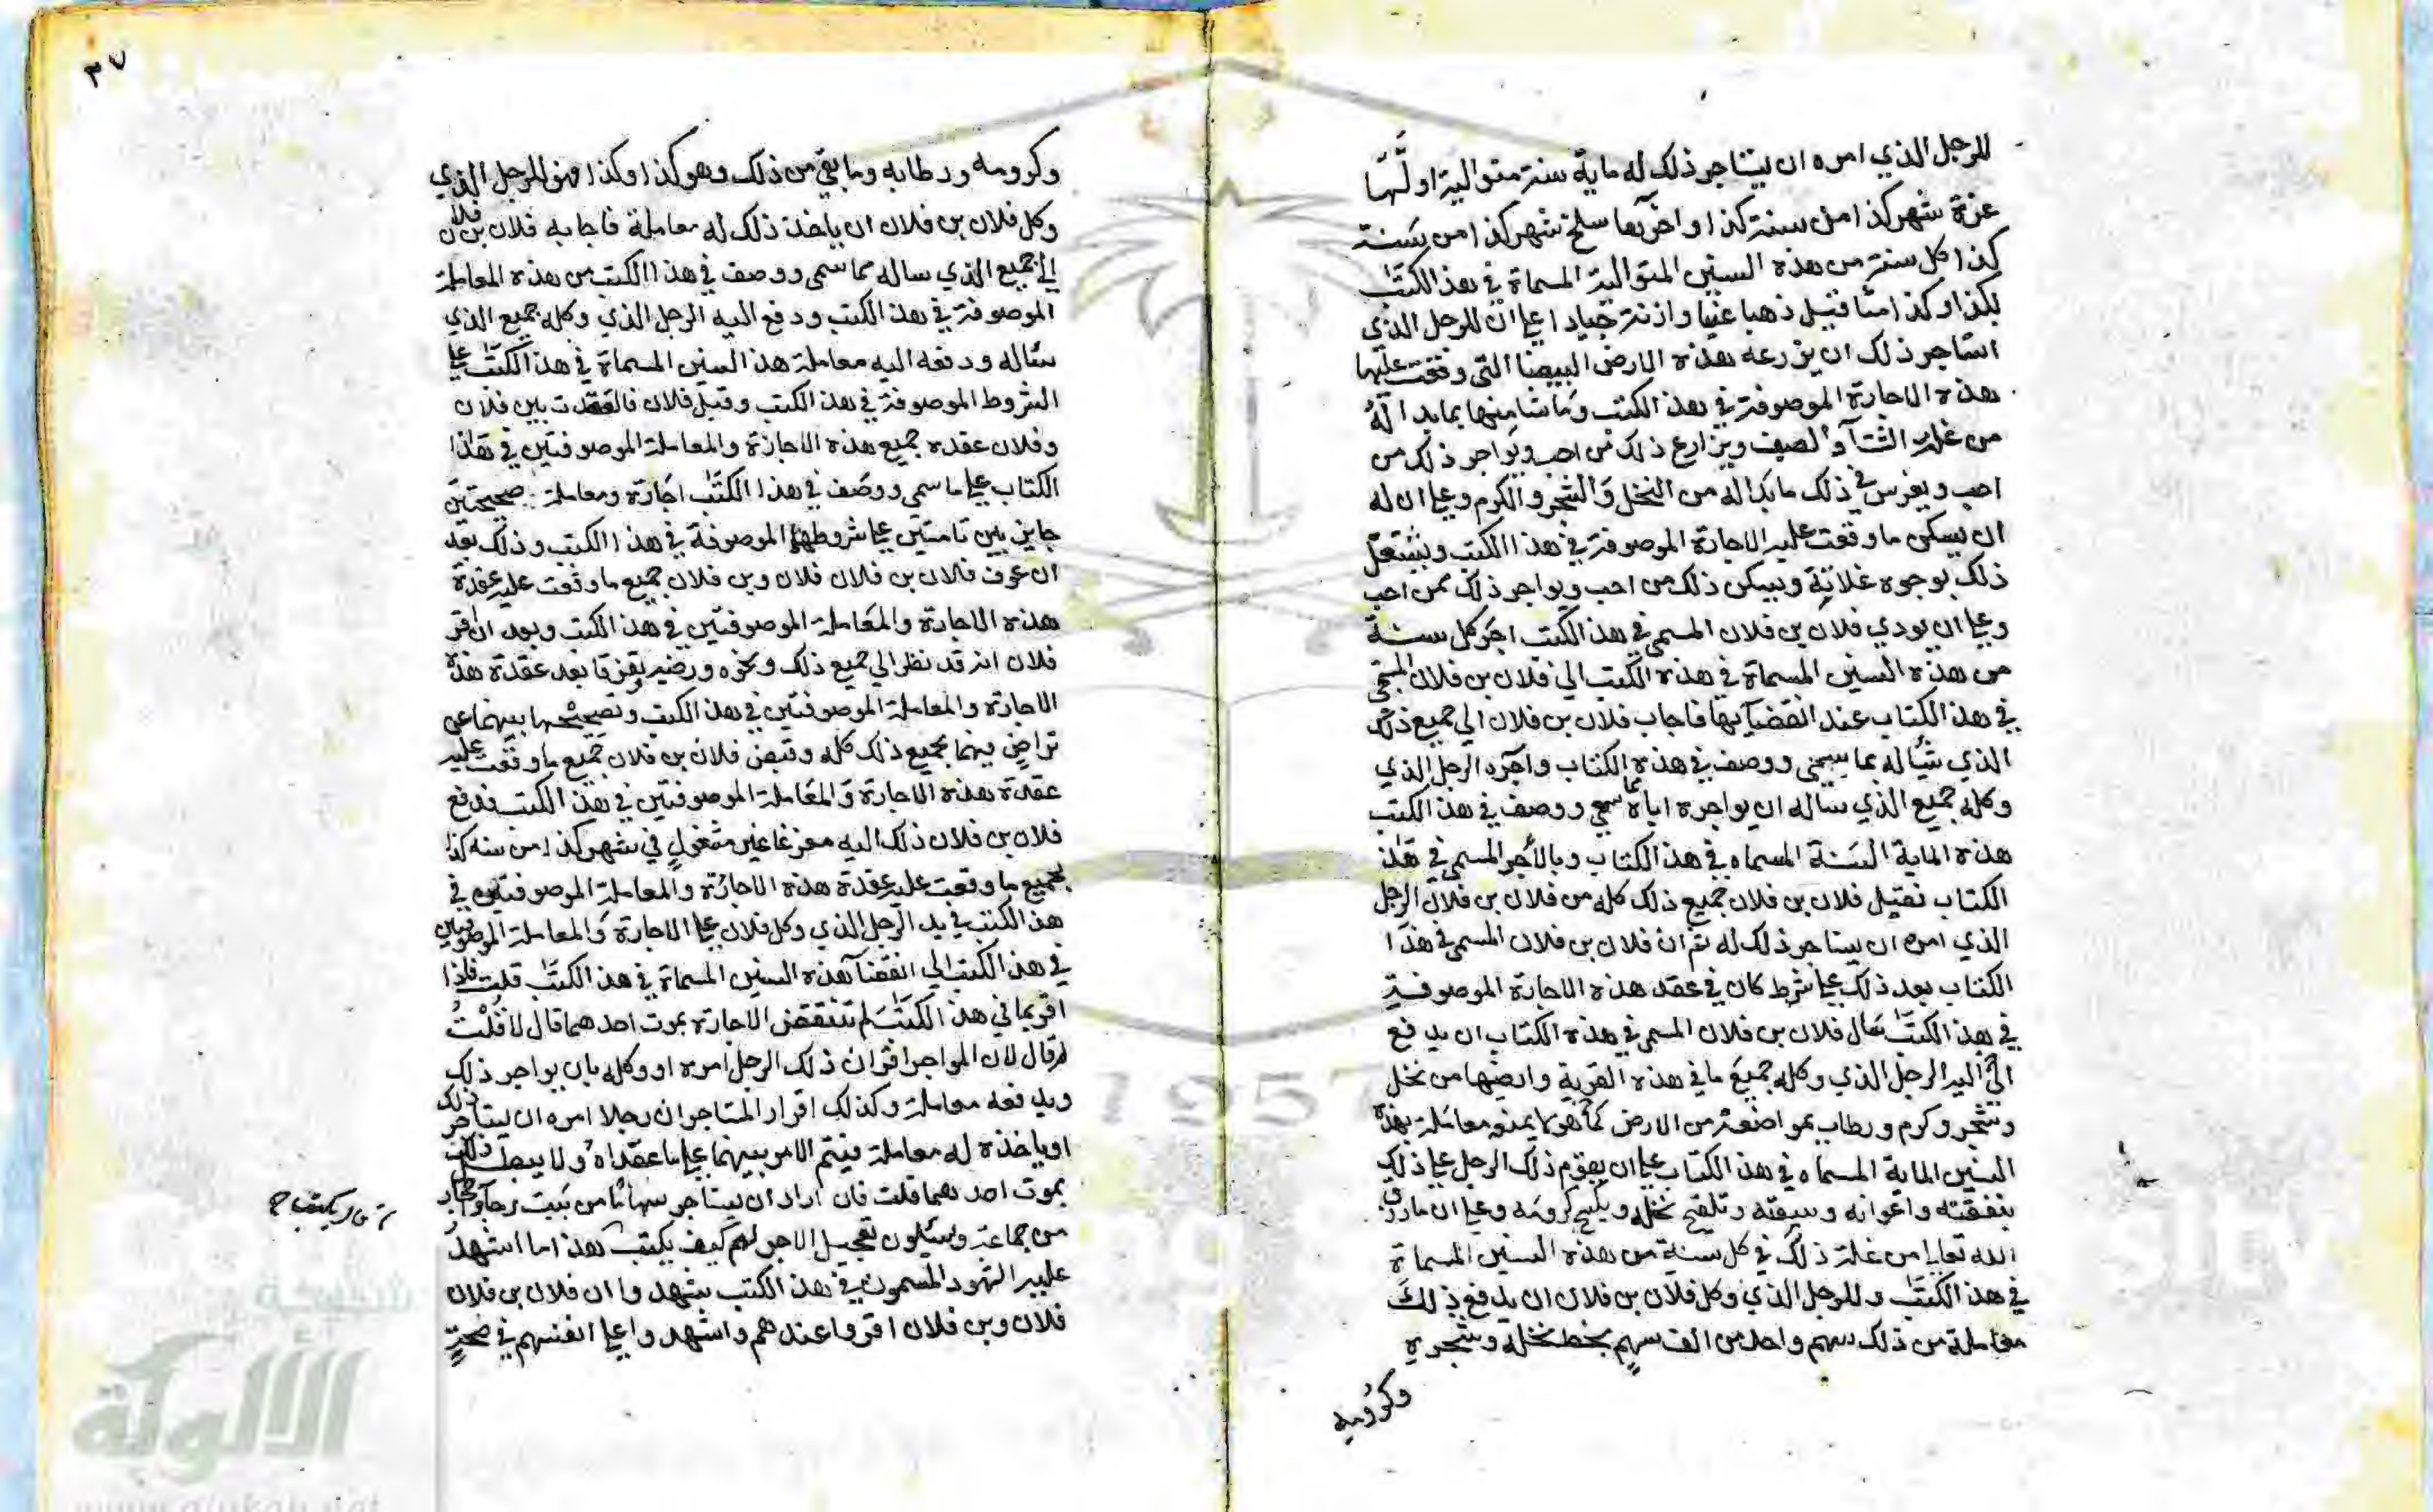 للرجل الذي امره ان يستاجر ذلك له ماية سنة متوالية اولها
غرة شهر كذا من سنة كذا واخرها سلخ شهر كذا من سنة
كذا كل سنة من هذه السنين المتوالية المسماة في هذا الكتب
بكذا وكذا مثاقيل ذهبا عينا وازنة جيادا على ان للرجل الذي
استاجر ذلك ان يزرعه هذه الارض البيضا التي وقعت عليها
هذه الاجارة الموصوفة في هذا الكتب وما شا منها بما بدا له
من غلة الشتآ والصيف ويزارع ذلك من احب ويواجر ذلك من
احب ويغرس في ذلك ما بدا له من النخل والشجر والكرم وعلى ان له
ان يسكن ما وقعت عليه الاجارة الموصوفة في هذا الكتب ويشتغل
ذلك بوجوه غلاته ويسكن ذلك من احب ويواجر ذلك ممن احب
وعلى ان يودي فلان بن فلان المسمى في هذا الكتب اجر كل سنة
من هذه السنين المسماة في هذه الكتب الي فلان بن فلان المسمى
في هذا الكتاب عند انقضآيها فاجاب فلان بن فلان الي جميع ذلك
الذي ساله مما سمى ووصف في هذه الكتاب واجره الرجل الذي
وكله جميع الذي ساله ان يواجره اياه مما سمى ووصف في هذا الكتب
هذه الماية السنة المسماه في هذا الكتاب وبالاجر المسمى في هذا
الكتاب فقبل فلان بن فلان جميع ذلك كله من فلان بن فلان الرجل
الذي امره ان يستاجر ذلك له ثم ان فلان بن فلان المسمى في هذا
الكتاب بعد ذلك على شرط كان في عقد هذه الاجارة الموصوفة
في هذا الكتب سال فلان بن فلان المسمى في هذه الكتاب ان يدفع
الي الرجل الذي وكله جميع ما في هذه القرية وارضها من نخل
وشجر وكرم ورطاب بمواضعه من الارض كما هو معاملة هذه
السنين الماية المسماه في هذا الكتاب على ان يقوم ذلك الرجل على ذلك
بنفقته واعوانه وسيقته وتلقيح نخله ويكسح كرومه وعلى ان ما رزق
الله تعالى من غلة ذلك في كل سنة من هذه السنين المسماة
في هذا الكتب وللرجل الذي وكل فلان بن فلان ان يدفع ذلك
معاملة من ذلك سهم واحد من الف سهم بخط نخله وشجره
وكرومه
٣٧
وكرومه ورطابه وما بقي من ذلك وهو كذا وكذا فهو للرجل الذي
وكل فلان بن فلان ان ياخذ ذلك له معاملة فاجابه فلان بن فلان
الي جميع الذي ساله مما سمى ووصف في هذا الكتب من هذه المعاملة
الموصوفة في هذا الكتب ودفع اليه الرجل الذي وكله جميع الذي
ساله ودفعه اليه معاملة هذا السنين المسماة في هذا الكتب على
الشروط الموصوفة في هذا الكتب وقبل فلان فانعقدت بين فلان
وفلان عقده جميع هذه الاجازة والمعاملة الموصوفتين في هذا
الكتاب على ما سمى ووصف في هذا الكتب اجازة ومعاملة صحيحتين
جايزيين تامتين على شروطها الموصوفة في هذا الكتب وذلك بعد
ان عرف فلان بن فلان فلان وبن فلان جميع ما وقعت عليه عقدة
هذه الاجارة والمعاملة الموصوفتين في هذا الكتب وبعد ان اقر
فلان انه قد نظر الي جميع ذلك ورضيه تفرقا بعد عقدة هذه
الاجارة والمعاملة الموصوفتين في هذا الكتب وتصحيحها بينهما عن
تراض منهما بجميع ذلك كله وقبض فلان بن فلان جميع ما وقعت عليه
عقدة هذه الاجارة والمعاملة الموصوفتين في هذا الكتب فدفع
فلان بن فلان ذلك اليه مفرغا غير مشغول في شهر كذا من سنه كذا
بجميع ما وقعت عليه عقدة هذه الاجارة والمعاملة الموصوفتين في
هذا الكتب في يد الرجل الذي وكل فلان على الاجارة والمعاملة الموصوفتين
في هذا الكتب الي انقضآ هذه السنين المسماة في هذا الكتب قلت فلذا
اقر بما في هذا الكتب لم تنتقض الاجارة بموت احدهما قال لا قلت
لم قال لان المواجر اقر ان ذلك الرجل امره او وكله بان يواجر ذلك
ويدفعه معاملة وكذلك اقرار المستاجر ان رجلا امره ان يستاجر ذلك
او ياخذه له معاملة فيتم الامر بينهما على ما عقداه ولا يبطل ذلك
بموت احدهما قلت فان اراد ان يستاجر سهاما من بيت رحآ
من جماعة ويسئلون تعجيل الاجر لهم كيف يكتب هذا ما اشهد
عليه الشهود المسمون في هذا الكتب شهدوا ان فلان بن فلان
فلان وبن فلان اقروا عندهم واشهدوا على انفسهم في صحة
شبكة
الألوكة
www.alukah.net
1957